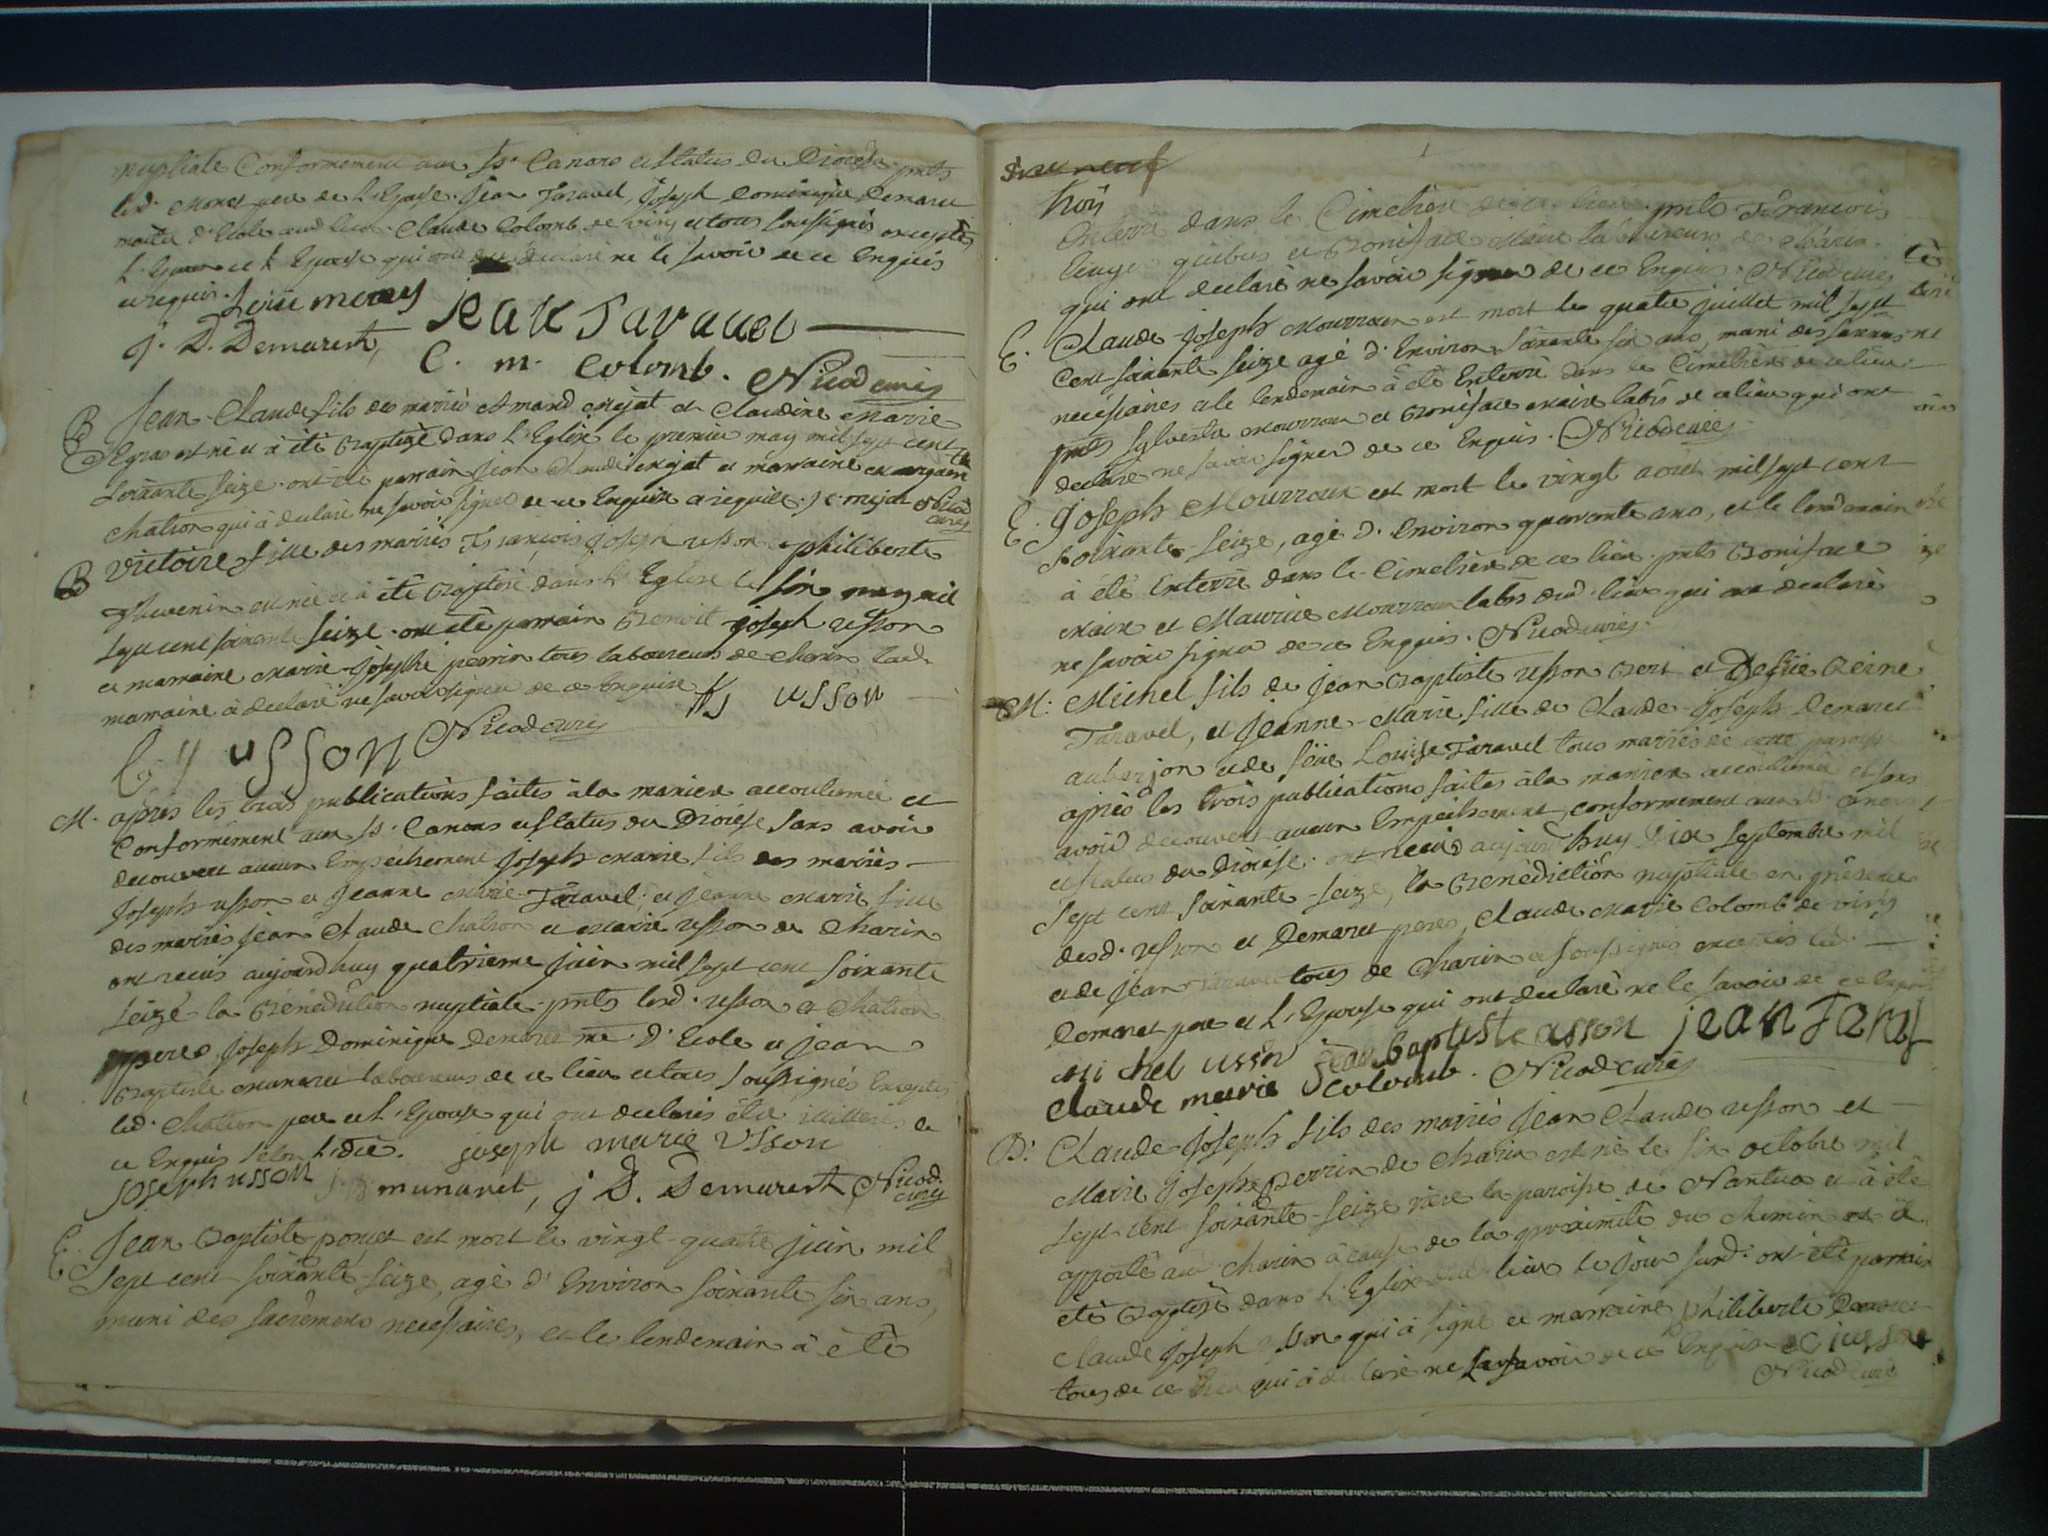 nuptiale Conformement aux Sts. Canons et statuts du Diocese. pnts
led. Monet pere de L'Epouse. Jean Taravel, Joseph Dominique Demaret
maitre d'Ecole aud. lieu. Claude Colomb de viry et tous soussignés exceptés
L'Epoux et L'Epouse qui ont declaré ne le savoir de ce Enquis
et requis.
J. D. Demarest, Jean Taravel
C. m. Colomb. Nicod curé
B Jean Claude fils des mariés Mejat et Claudine Marie
est né et à été Baptizé dans L'Eglise le premier may mil sept cent
soixante seize. ont été parrain Jean Claude Mejat et marraine
Chatron qui à declaré ne savoir signer de ce Enquise et requise. J C mejat Nicod
curé
B Victoire fille des mariés François Joseph Usson et philiberte
Thevenin est née et à été Baptizée dans L'Eglise le six may mil
sept cent soixante seize. ont été parrain Benoit joseph Usson
et marraine Marie Josephe perrin tous laboureurs de Charix lad.
marraine à declaré ne savoir signer de ce Enquise fs usson
B j usson Nicod curé
M. après les trois publications faites à la maniere accoutumée et
Conformément aux Sts. Canons et statuts du Diocése sans avoir
decouvert aucun Empéchement Joseph Marie fils des mariés
Joseph Usson et Jeanne Marie Taravel; et Jeanne Marie fille
des mariés Jean Claude Chatron et Marie Usson de Charix
ont recus aujourd'huy quatrieme juin mil sept cent soixante
seize la Bénédiction nuptiale. pnts lesd. Usson et Chatron
peres, Joseph Dominique Demaret me. d'Ecole et Jean
Baptiste Munaret laboureurs de ce lieu et tous soussignés Exceptés
led. Chatron pere et L'Epouse qui ont declarés être illitterés de
ce Enquis selon L'Edit. joseph marie Usson
joseph usson munaret, j D. Demarest Nicod.
curé
E. Jean Baptiste poncet est mort le vingt-quatre juin mil
sept cent soixante-seize, agé d'Environ soixante six ans,
muni des sacrements necessaires, et le lendemain à été
trois
Enterré dans le Cimetiére de ce lieu. pnts François
et Boniface Maire laboureurs de Charix.
qui ont declaré ne savoir signer de ce Enquis. Nicod curé
E. Claude-Joseph Mourroux est mort le quatre juillet mil sept
cent soixante seize agé d'Environ soixante six ans, muni des sacrements
necéssaires et le lendemain à été Enterré dans le Cimetiére de ce lieu.
pnts Sylvestre Mourroux et Boniface Maire labrs de ce lieu qui ont
declaré ne savoir signer de ce Enquis. Nicod curé
E. Joseph Mourroux est mort le vingt aout mil sept cent
soixante-seize, agé d'Environ quarante ans, et le lendemain
à été Enterré dans le Cimetiére de ce lieu. pnts Boniface
Maire et Maurice Mourroux labrs dud. lieu qui ont declaré
ne savoir signer de ce Enquis. Nicod curé.
M: Michel fils de Jean Baptiste Usson et Reine
Taravel, et Jeanne-Marie fille de Claude-Joseph Demaret
et de Louise Taravel tous mariés de cette paroisse
après les trois publications faites à la maniere accoutumée et sans
avoir decouvert aucun Empéchement, conformement aux Sts. canons
et statuts du Diocése. ont recus aujourd'huy Dix Septembre mil
sept cent soixante-seize, la Bénédiction nuptiale en présence
desd. Usson et Demaret peres, Claude Marie Colomb de viry
et de Jean Taravel tous de Charix et soussignés exceptés led.
Demaret pere et L'Epouse qui ont declaré ne le savoir de ce Enquis
mi chel usson jean baptiste usson jean
Claude marie Colomb. Nicod curé
B: Claude-Joseph fils des mariés Jean Claude Usson et
Marie Josephe perrin de Charix est né le six octobre mil
sept cent soixante-seize riere la paroisse de Nantua et à été
apporté aud. Charix à cause de la proximité du chemin et à
été Baptizé dans L'Eglise dud. lieu le jour susd. ont été parrain
Claude Joseph Usson qui à signé et marraine philiberte
tous de ce lieu qui à declaré ne savoir de ce Enquise C j usson
Nicod curé